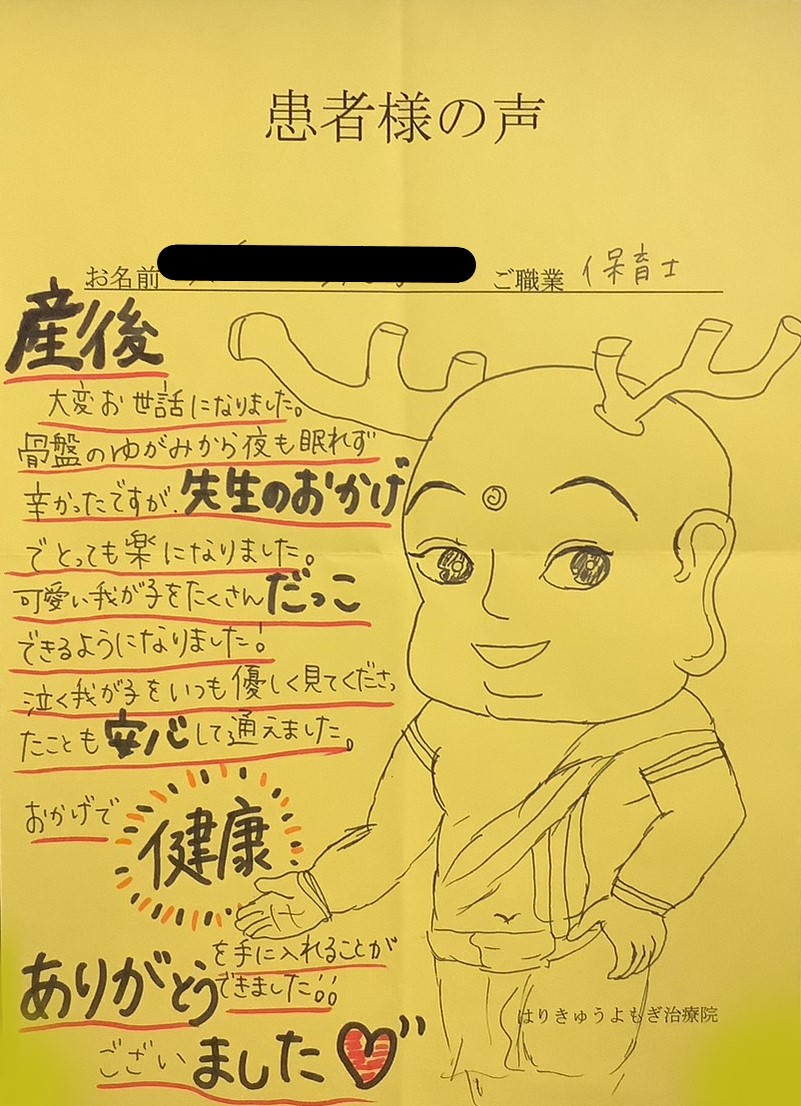 患者様の声
お名前 ご職業 保育士
産後
大変お世話になりました。
骨盤のゆがみから夜も眠れず
辛かったですが、先生のおかげ
でとっても楽になりました。
可愛い我が子をたくさんだっこ
できるようになりました!
泣く我が子をいつも優しく見てくださっ
たことも安心して通えました。
おかげで
健康
を手に入れることが
できました!!
ありがとう
ございました
はりきゅうよもぎ治療院